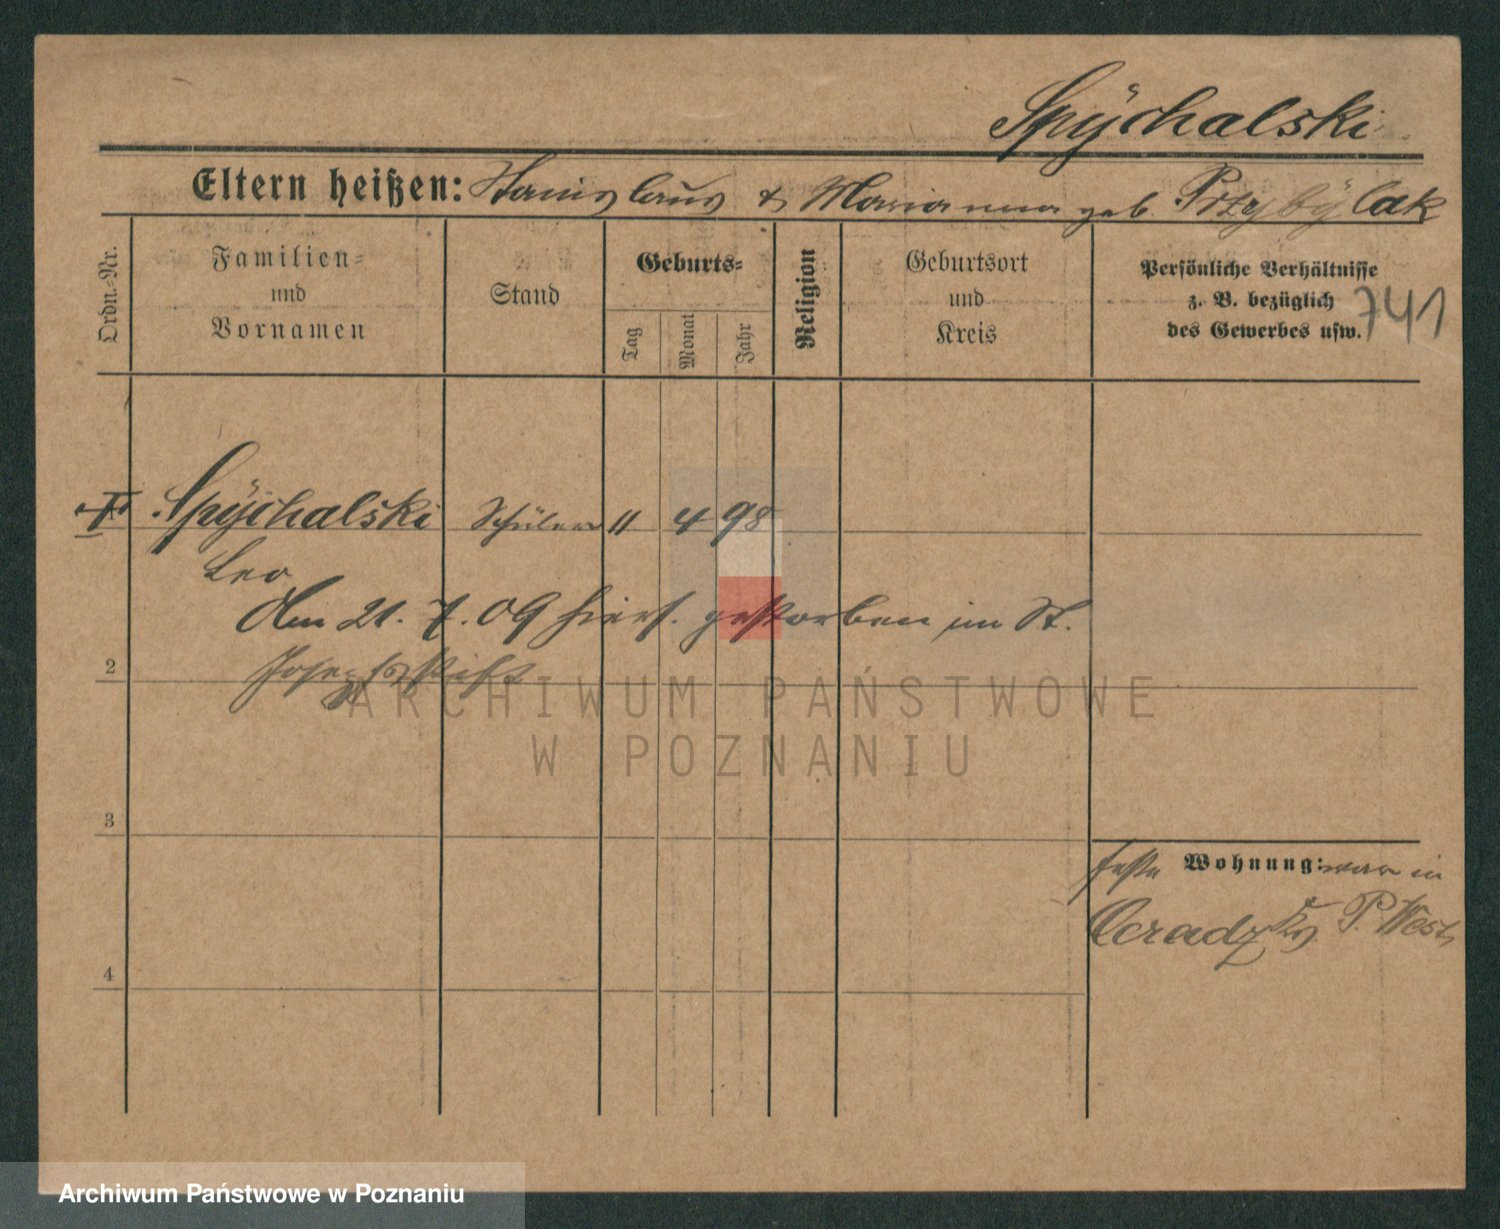 Spÿchalski
Eltern heißen: Stanislaus & Marianna geb. Przybÿlak
Ordn.-Nr.
Familien-
und
Vornamen
Stand
Geburts-
Tag
Monat
Jahr
Religion
Geburtsort
und
Kreis
Persönliche Verhältnisse
z. B. bezüglich
des Gewerbes usw.
741
Spÿchalski Schüler 11 4 98
Leo
Am 21. 7. 09 hiers. gestorben im St.
Josephsstift
2
3
4
feste Wohnung: war in
Ceradz P. West
ARCHIWUM PAŃSTWOWE
W POZNANIU
Archiwum Państwowe w Poznaniu